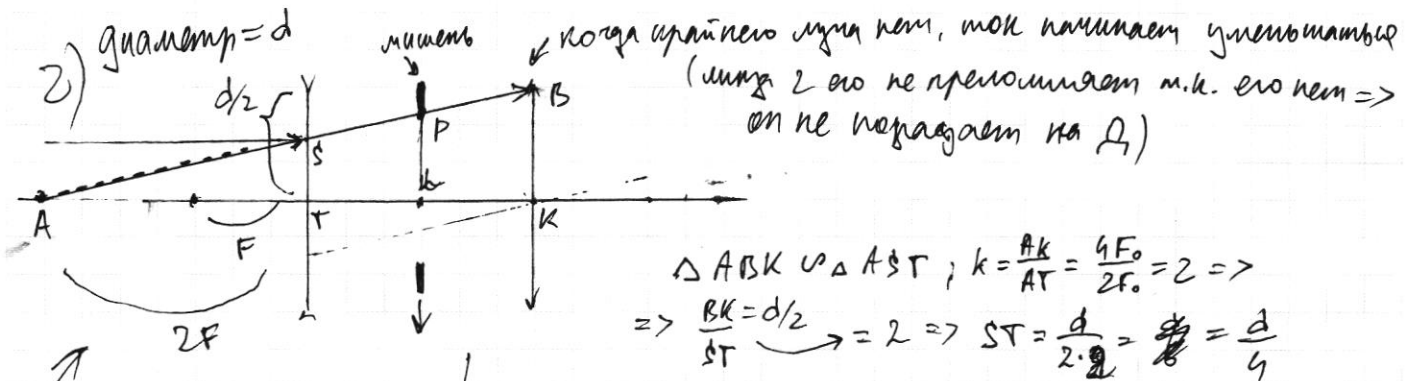 2) диаметр = d
мишень
когда крайнего луча нет, ток начинает уменьшаться
(линза 2 его не преломляет т.к. его нет =>
он не попадает на Д)
d/2
B
P
S
L
A
T
K
F
2F
Δ ABK ∽ Δ AST ; k = AK/AT = 4F₀/2F₀ = 2 =>
=> BK/ST = d/2 = 2 => ST = d/2·2 = d/4